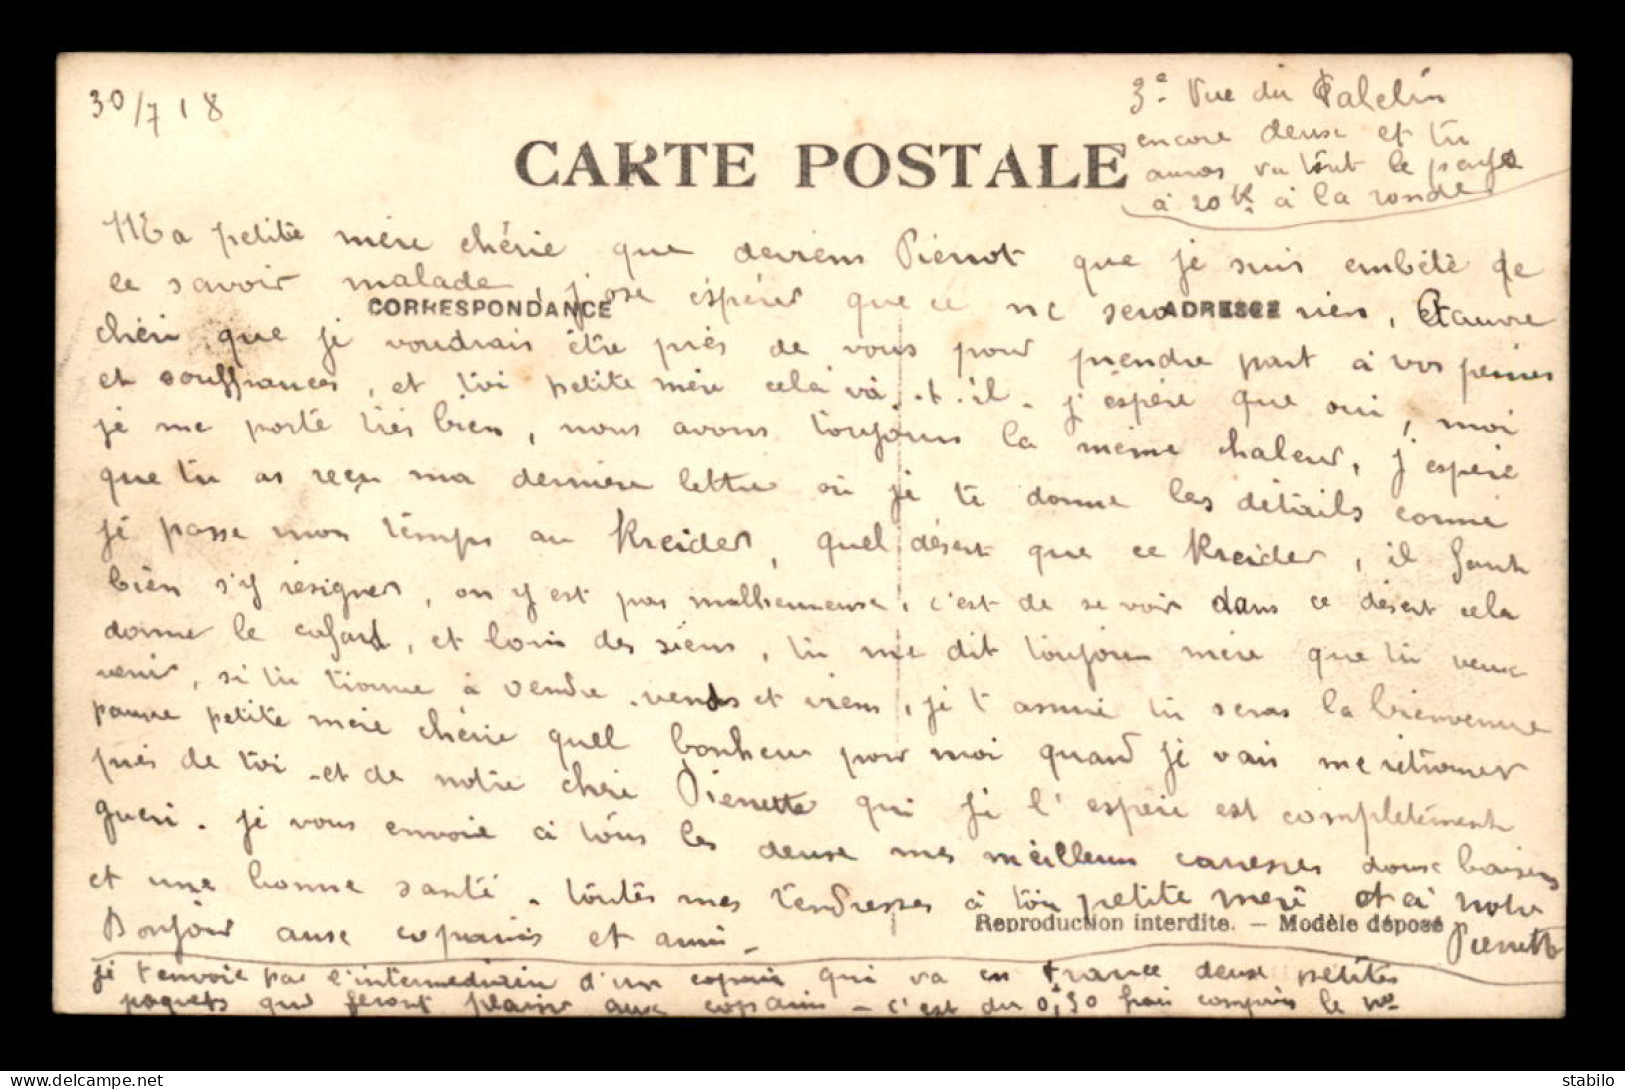 30/7 18
3e Vue du
encore deuse et tu
auras vu tout le pays
à 20 k. à la ronde
CARTE POSTALE
Ma petite mère chérie que deviens Pierrot que je suis embêté de
le savoir malade, j'ose espérer que ce ne sera rien, Pauvre
CORRESPONDANCE
ADRESSE
chéri que je voudrais être près de vous pour prendre part à vos peines
et souffrances, et toi petite mère cela va-t-il. j'espère que oui, moi
je me porte très bien, nous avons toujours la même chaleur, j'espère
que tu as reçu ma dernière lettre où je te donne les détails comme
je passe mon temps au Kreider, quel désert que ce Kreider, il faut
bien s'y résigner, on y est pas malheureuse, c'est de se voir dans ce désert cela
donne le cafard, et loin des siens, tu me dit toujours mère que tu veux
venir, si tu trouve à vendre, vends et viens, je t'assure tu seras la bienvenue
pauvre petite mère chérie quel bonheur pour moi quand je vais me retrouver
près de toi et de notre chère Pierrette qui je l'espère est complètement
guéri. je vous envoie à tous les deuse mes meilleurs caresses douse baisers
et une bonne santé. toutes mes tendresses à toi petite mère et à notre
Pierrette
Reproduction interdite. — Modèle déposé
Bonjour ause copains et amis -
je t'envoie par l'intermédiaire d'un copain qui va en France deuse petites
paquets qui feront plaisir ause copains - c'est du 0f,50 frais compris le No